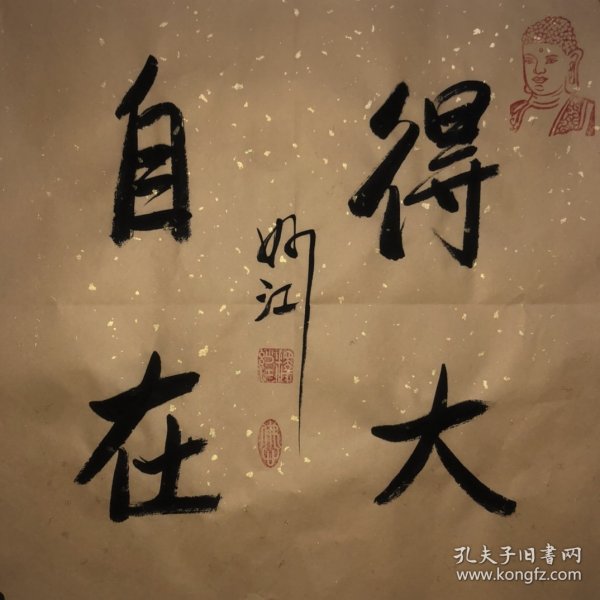 得大
自在
妙江
孔夫子旧书网
www.kongfz.com